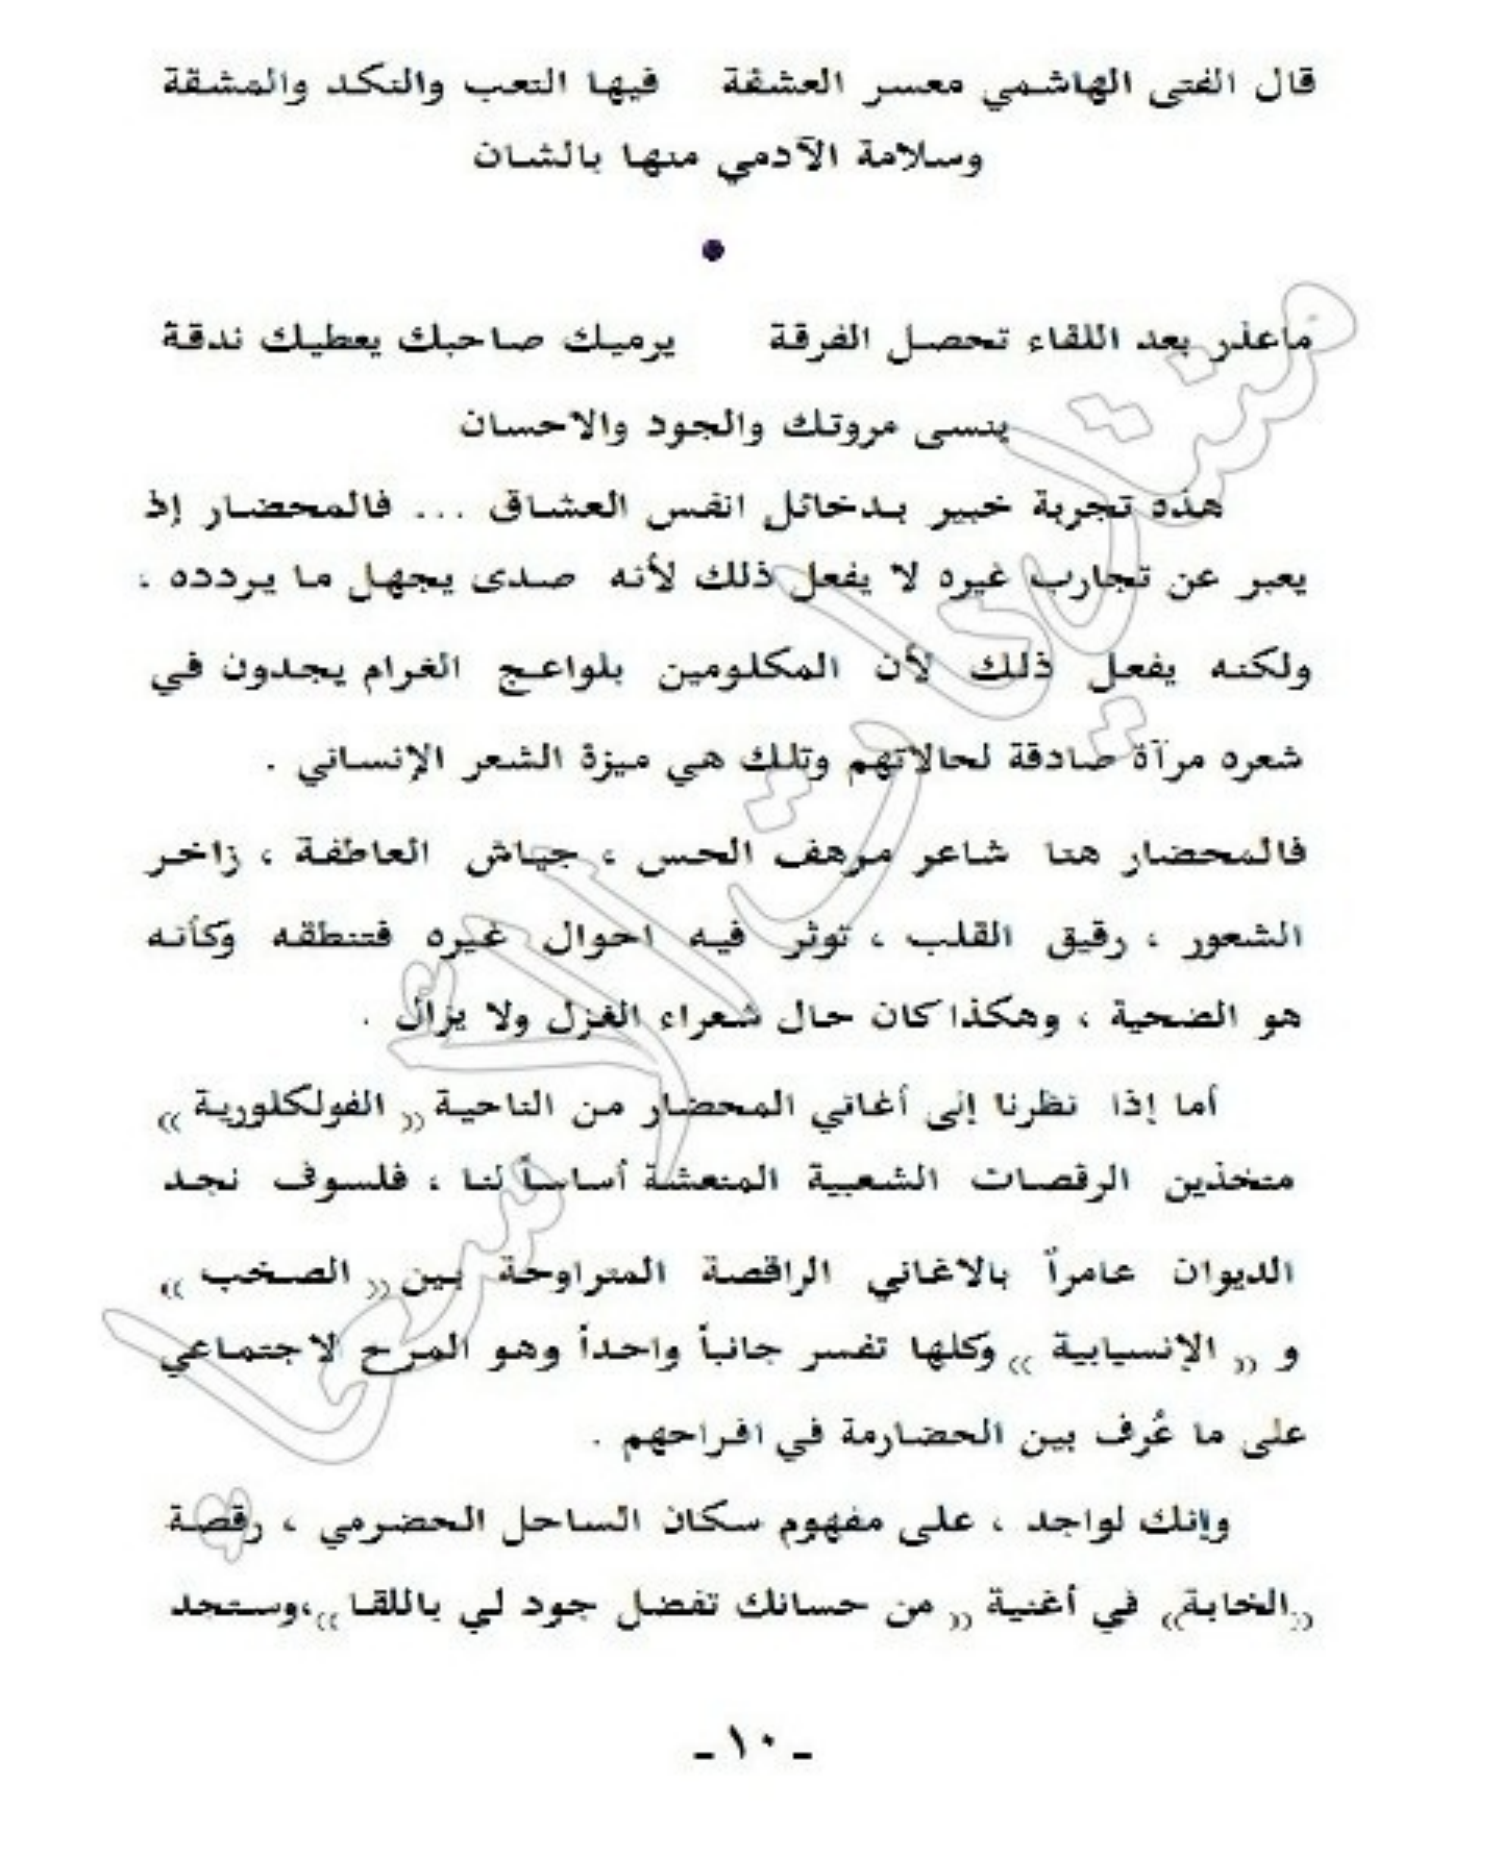 قال الفتى الهاشمي معسر العشقة فيها التعب والنكد والمشقة
وسلامة الآدمي منها بالشان
•
ماعذر بعد اللقاء تحصل الفرقة يرميك صاحبك يعطيك ندقة
ينسى مروتك والجود والاحسان
هذه تجربة خبير بدخائل انفس العشاق ... فالمحضار إذ
يعبر عن تجارب غيره لا يفعل ذلك لأنه صدى يجهل ما يردده ،
ولكنه يفعل ذلك لأن المكلومين بلواعج الغرام يجدون في
شعره مرآة صادقة لحالاتهم وتلك هي ميزة الشعر الإنساني .
فالمحضار هنا شاعر مرهف الحس ، جياش العاطفة ، زاخر
الشعور ، رقيق القلب ، توثر فيه احوال غيره فتنطقه وكأنه
هو الضحية ، وهكذا كان حال شعراء الغزل ولا يزال .
أما إذا نظرنا إلى أغاني المحضار من الناحية « الفولكلورية »
متخذين الرقصات الشعبية المنعشة أساساً لنا ، فلسوف نجد
الديوان عامراً بالاغاني الراقصة المتراوحة بين « الصخب »
و « الإنسيابية » وكلها تفسر جانباً واحداً وهو المرح لاجتماعي
على ما عُرف بين الحضارمة في افراحهم .
وإنك لواجد ، على مفهوم سكان الساحل الحضرمي ، رقصة
«الخابة» في أغنية « من حسانك تفضل جود لي باللقا »،وستجد
ـ ١٠ ـ
منتديات الأسعاء